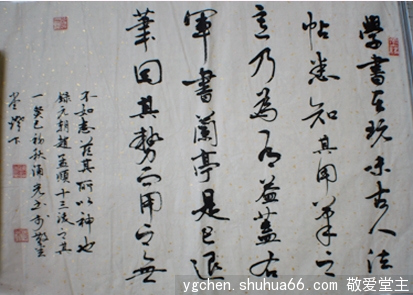 學書在玩味古人法
帖悉知其用筆之
意乃為有益蓋右
軍書蘭亭是已退
筆因其勢而用之無
不如志茲其所以神也
錄元朝趙孟頫十三跋之其
一癸巳初秋
堂燈下
ygchen.shuhua66.com 敬爱堂主